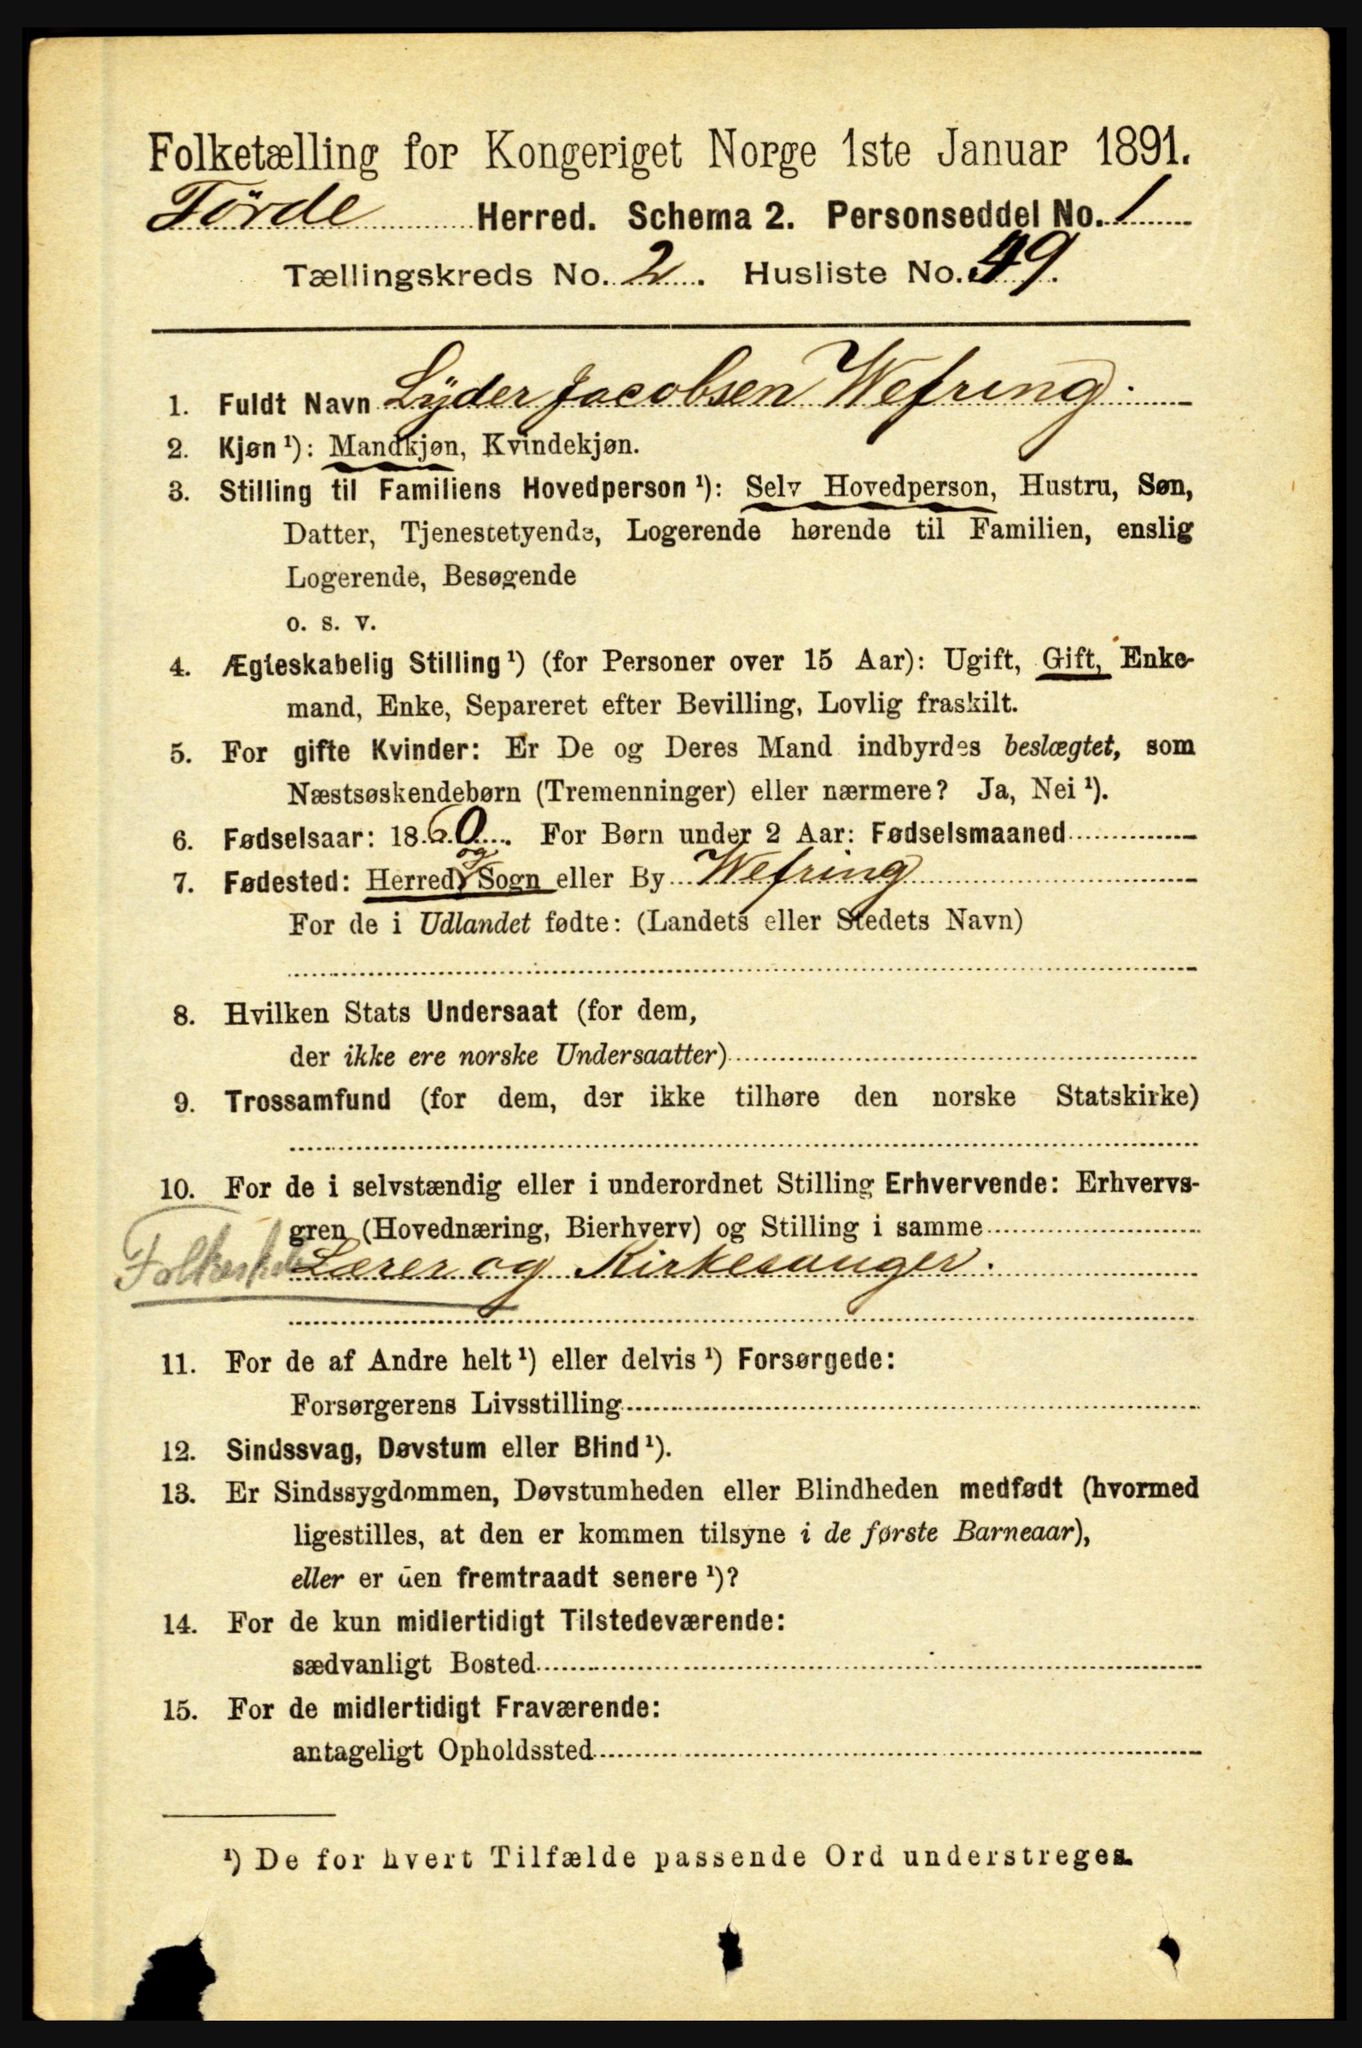 Folketælling for Kongeriget Norge 1ste Januar 1891.
Førde Herred. Schema 2. Personseddel No. 1
Tællingskreds No. 2. Husliste No. 49.
1. Fuldt Navn Lyder Jacobsen Wefring.
2. Kjøn¹): Mandkjøn, Kvindekjøn.
3. Stilling til Familiens Hovedperson¹): Selv Hovedperson, Hustru, Søn,
Datter, Tjenestetyende, Logerende hørende til Familien, enslig
Logerende, Besøgende
o. s. v.
4. Ægteskabelig Stilling¹) (for Personer over 15 Aar): Ugift, Gift, Enke-
mand, Enke, Separeret efter Bevilling, Lovlig fraskilt.
5. For gifte Kvinder: Er De og Deres Mand indbyrdes beslægtet, som
Næstsøskendebørn (Tremenninger) eller nærmere? Ja, Nei¹).
6. Fødselsaar: 1860. For Børn under 2 Aar: Fødselsmaaned
7. Fødested: Herred, og Sogn eller By Wefring
For de i Udlandet fødte: (Landets eller Stedets Navn)
8. Hvilken Stats Undersaat (for dem,
der ikke ere norske Undersaatter)
9. Trossamfund (for dem, der ikke tilhøre den norske Statskirke)
10. For de i selvstændig eller i underordnet Stilling Erhvervende: Erhvervs-
gren (Hovednæring, Bierhverv) og Stilling i samme
Folkeskole Lærer og Kirkesanger.
11. For de af Andre helt¹) eller delvis¹) Forsørgede:
Forsørgerens Livsstilling
12. Sindssvag, Døvstum eller Blind¹).
13. Er Sindssygdommen, Døvstumheden eller Blindheden medfødt (hvormed
ligestilles, at den er kommen tilsyne i de første Barneaar),
eller er den fremtraadt senere¹)?
14. For de kun midlertidigt Tilstedeværende:
sædvanligt Bosted
15. For de midlertidigt Fraværende:
antageligt Opholdssted
¹) De for hvert Tilfælde passende Ord understreges.